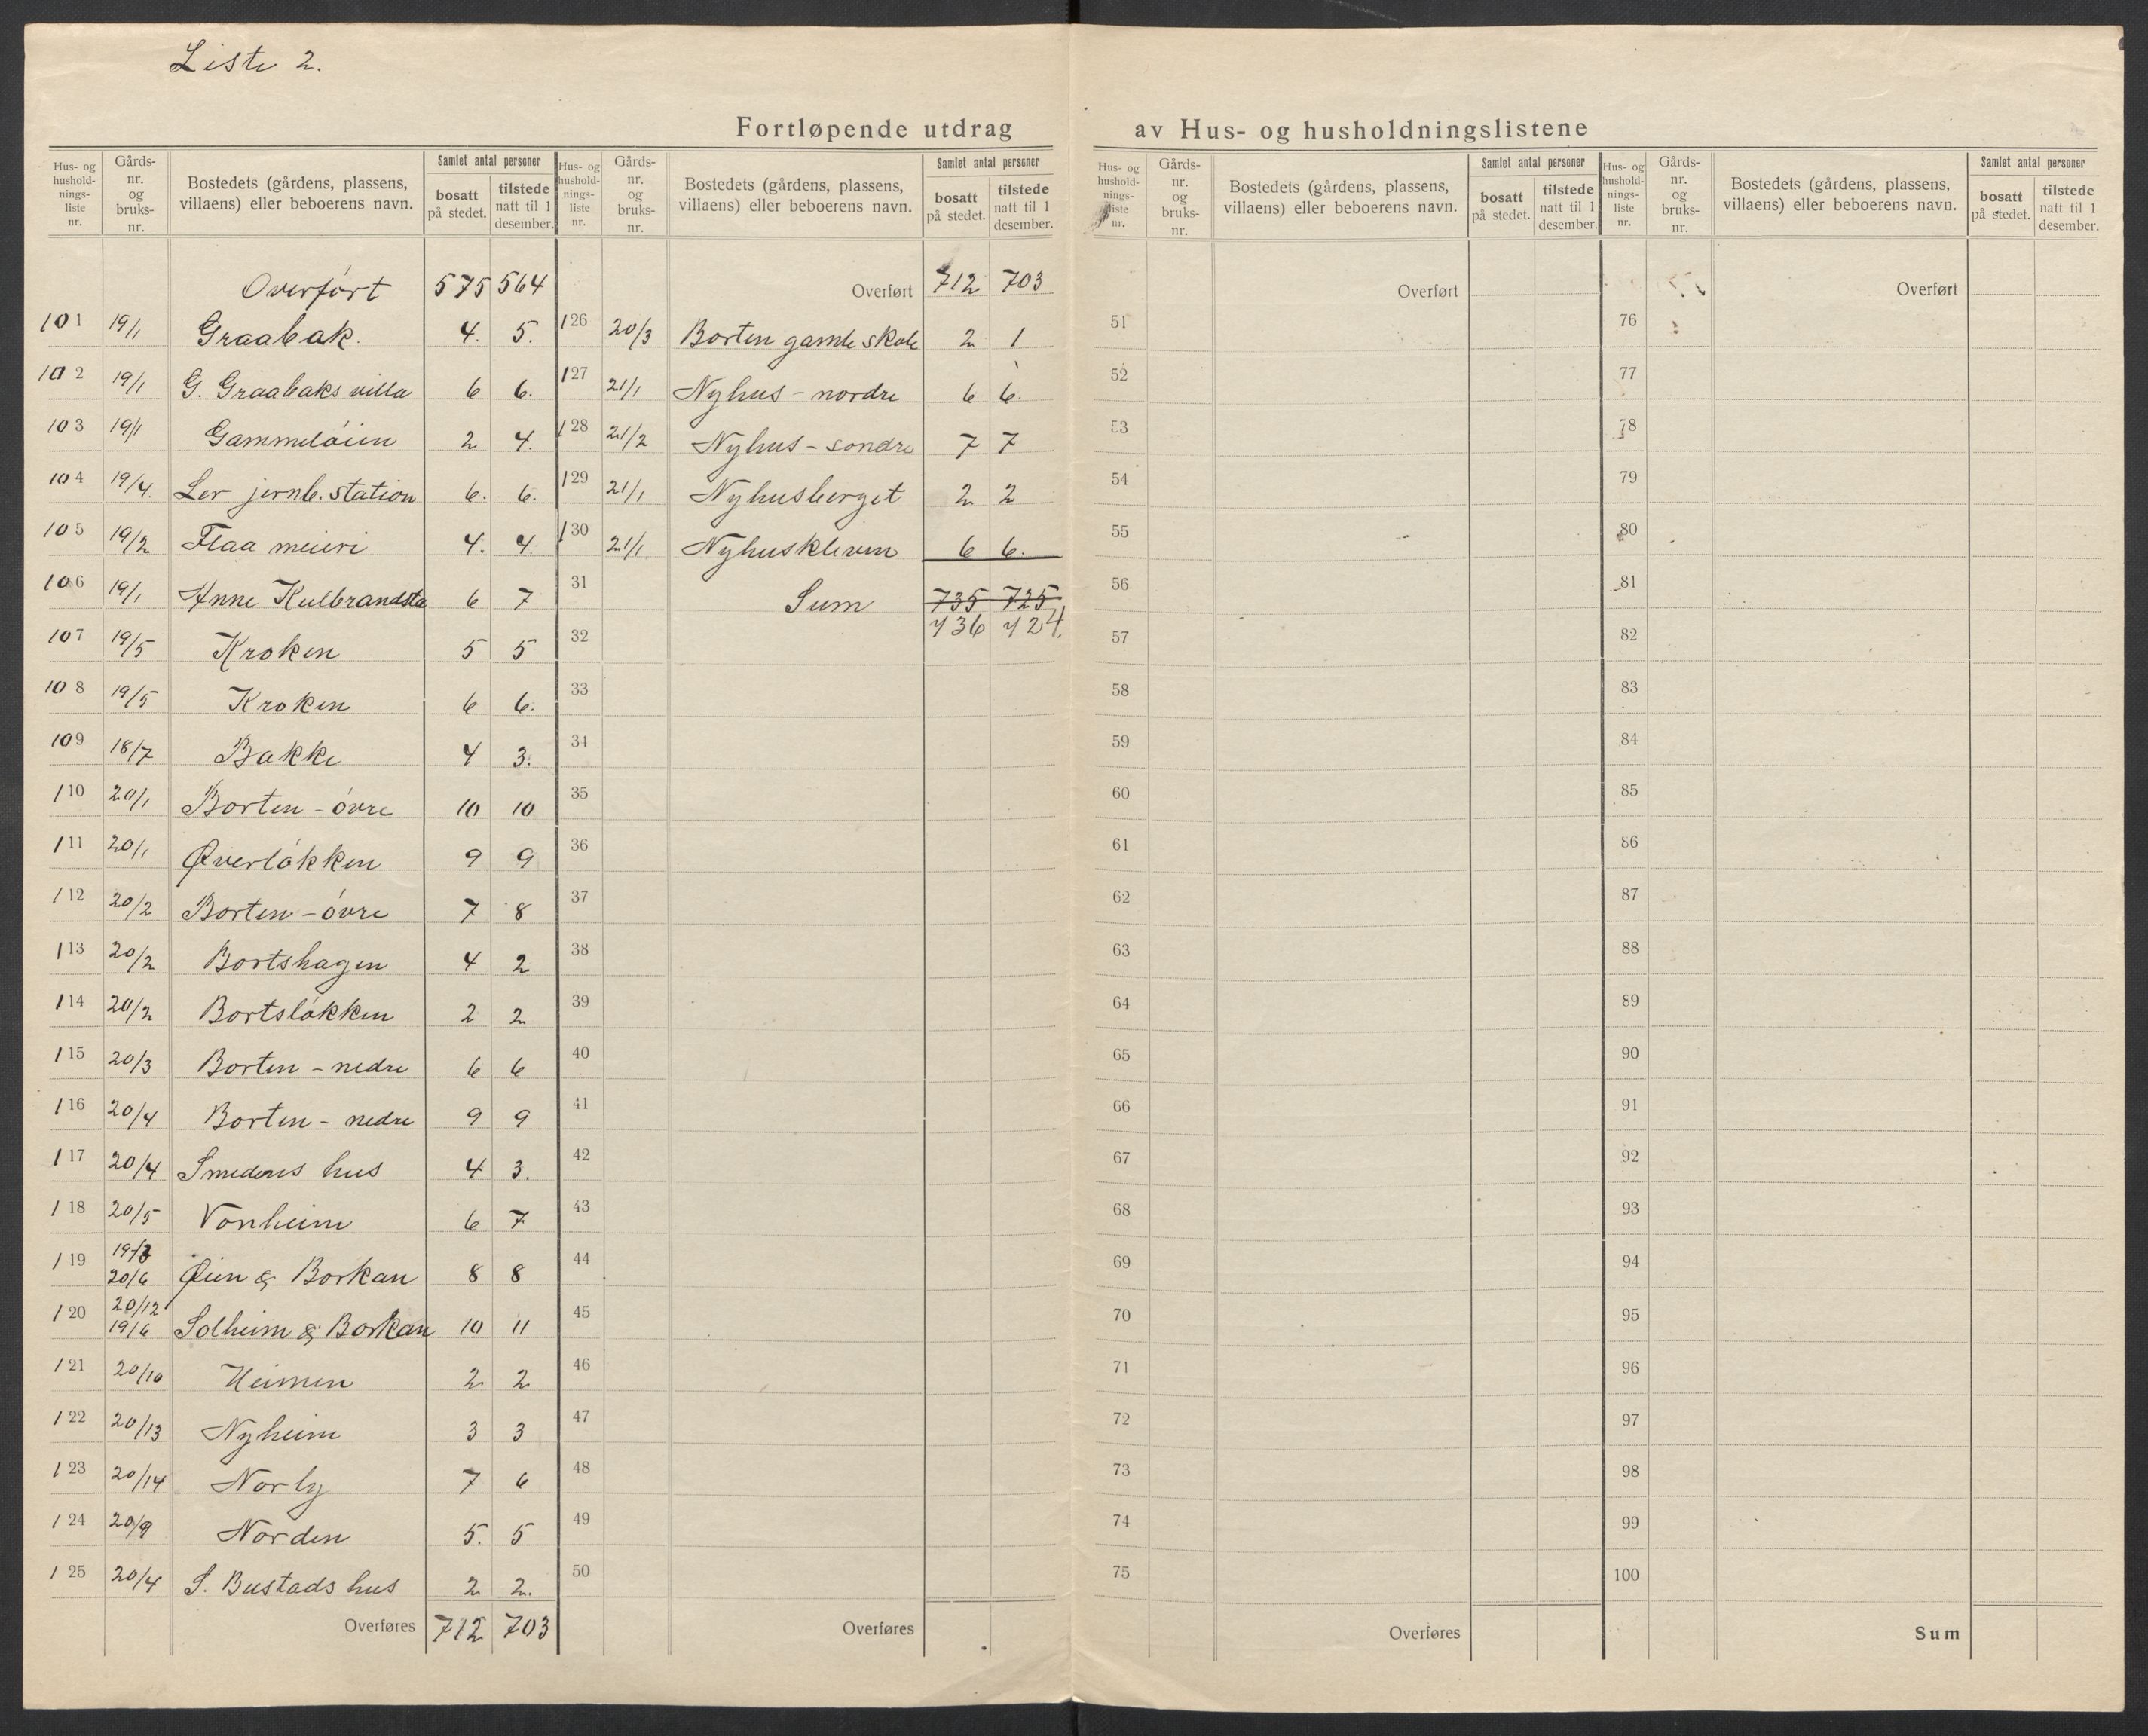 Liste 2.
Fortløpende utdrag av Hus- og husholdningslistene
Hus- og hushold-nings-liste nr. Gårds-nr. og bruks-nr. Bostedets (gårdens, plassens, villaens) eller beboerens navn. Samlet antal personer bosatt på stedet. tilstede natt til 1 desember.
Overført 575 564
101 19/1 Graabak. 4. 5.
102 19/1 G. Graabaks villa 6 6.
103 19/1 Gammeløien 2 4.
104 19/4. Ler jernb. station 6. 6.
105 19/2 Flaa meieri 4. 4.
106 19/1 Anne Kulbrandsta 6 7
107 19/5 Kroken 5 5
108 19/5 Kroken 6 6.
109 18/7 Bakke 4 3.
110 20/1 Borten - óvre 10 10
111 20/1 Øverløkken 9 9
112 20/2 Borten - óvre 7 8
113 20/2 Bortshagen 4 2
114 20/2 Bortsløkken 2 2
115 20/3 Borten - nedre 6 6
116 20/4 Borten - nedre 9 9
117 20/4 Smedens hus 4 3.
118 20/5 Vonheim 6 7
119 19/3 20/6 Øien & Borkan 8 8
120 20/12 19/6 Solheim & Borkan 10 11
121 20/10 Heimen 2 2
122 20/13 Nyheim 3 3
123 20/14 Norly 7 6
124 20/9 Norden 5. 5
125 20/4 S. Bustads hus 2 2.
Overføres 712 703
Hus- og hushold-nings-liste nr. Gårds-nr. og bruks-nr. Bostedets (gårdens, plassens, villaens) eller beboerens navn. Samlet antal personer bosatt på stedet. tilstede natt til 1 desember.
Overført 712 703
126 20/3 Borten gamle skole 2 1
127 21/1 Nyhus - nordre 6 6.
128 21/2 Nyhus - søndre 7 7
129 21/1 Nyhusberget 2 2
130 21/1 Nyhuskleven 6 6.
31 Sum 735 725
736 724.
32
33
34
35
36
37
38
39
40
41
42
43
44
45
46
47
48
49
50
Overføres
Hus- og hushold-nings-liste nr. Gårds-nr. og bruks-nr. Bostedets (gårdens, plassens, villaens) eller beboerens navn. Samlet antal personer bosatt på stedet. tilstede natt til 1 desember.
Overført
51
52
53
54
55
56
57
58
59
60
61
62
63
64
65
66
67
68
69
70
71
72
73
74
75
Overføres
Hus- og hushold-nings-liste nr. Gårds-nr. og bruks-nr. Bostedets (gårdens, plassens, villaens) eller beboerens navn. Samlet antal personer bosatt på stedet. tilstede natt til 1 desember.
Overført
76
77
78
79
80
81
82
83
84
85
86
87
88
89
90
91
92
93
94
95
96
97
98
99
100
Sum